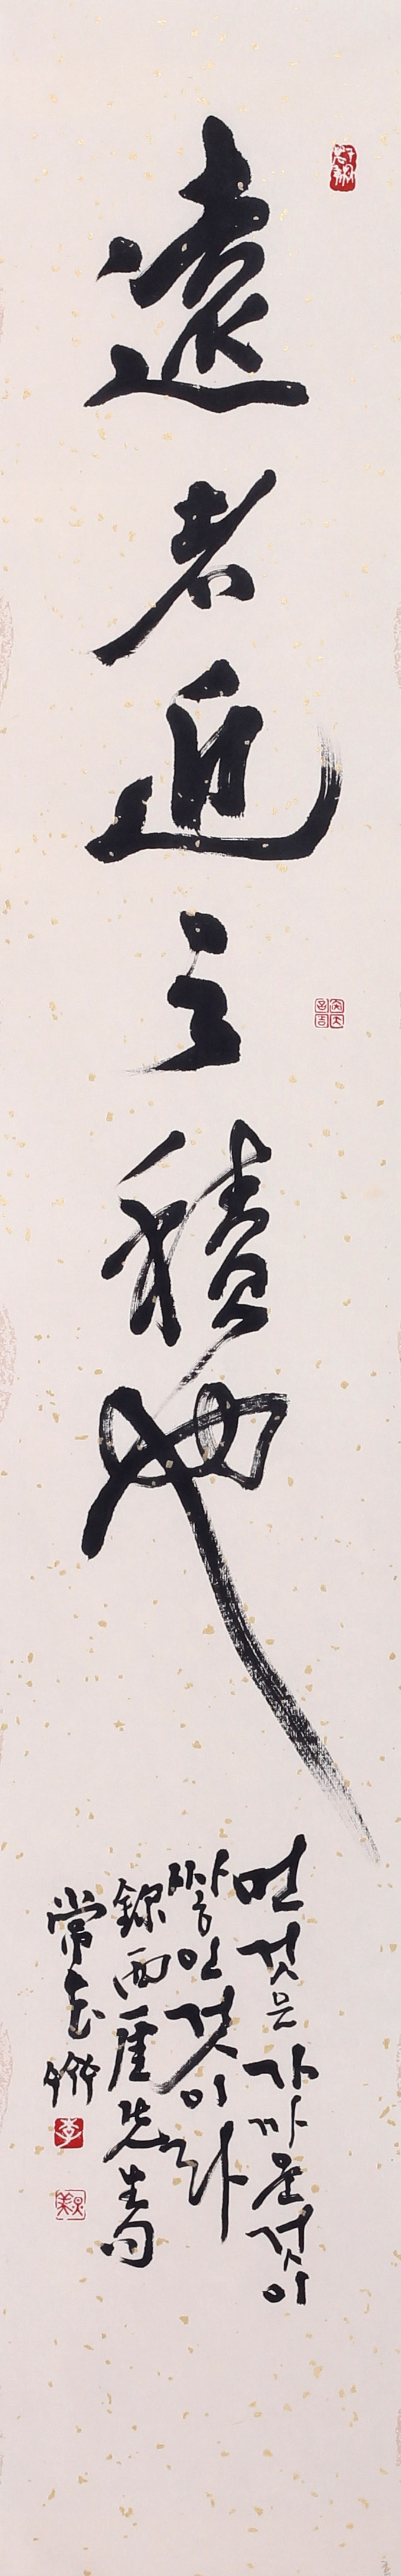 遠者近之積也
먼 것은 가까운 것이
쌓인 것이라
錄西厓先生句
常
李